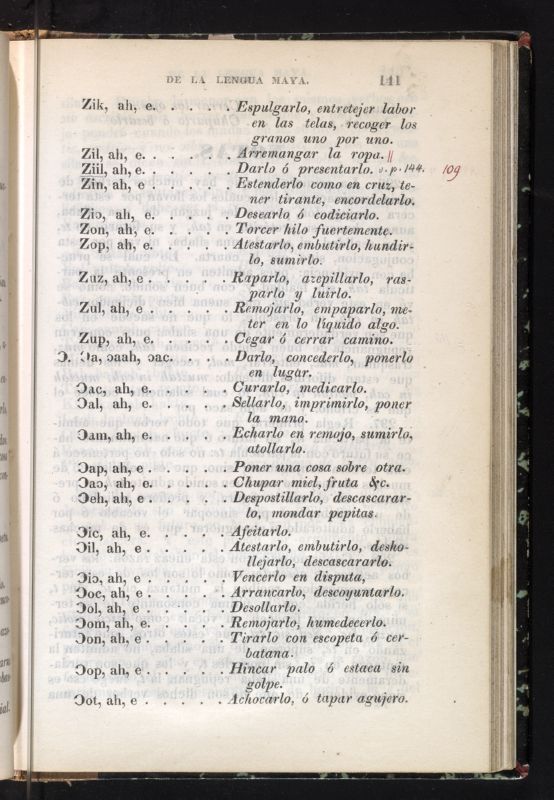 DE LA LENGUA MAYA. 141
Zik, ah, e. . . . . . Espulgarlo, entretejer labor
en las telas, recoger los
granos uno por uno.
Zil, ah, e. . . . . . Arremangar la ropa. ||
Ziil, ah, e. . . . . . Darlo ó presentarlo. v. p. 144. 109
Zin, ah, e . . . . . Estenderlo como en cruz, te-
ner tirante, encordelarlo.
Ziɔ, ah, e. . . . . . Desearlo ó codiciarlo.
Zon, ah, e. . . . . . Torcer hilo fuertemente.
Zop, ah, e. . . . . . Atestarlo, embutirlo, hundir-
lo, sumirlo.
Zuz, ah, e . . . . . Raparlo, azepillarlo, ras-
parlo y luirlo.
Zul, ah, e . . . . . Remojarlo, empaparlo, me-
ter en lo líquido algo.
Zup, ah, e. . . . . . Cegar ó cerrar camino.
Ɔ. Ɔa, ɔaah, ɔac. . . . . Darlo, concederlo, ponerlo
en lugar.
Ɔac, ah, e. . . . . . Curarlo, medicarlo.
Ɔal, ah, e. . . . . . Sellarlo, imprimirlo, poner
la mano.
Ɔam, ah, e. . . . . . Echarlo en remojo, sumirlo,
atollarlo.
Ɔap, ah, e . . . . . Poner una cosa sobre otra.
Ɔaɔ, ah, e. . . . . . Chupar miel, fruta &c.
Ɔeh, ah, e . . . . . Despostillarlo, descascarar-
lo, mondar pepitas.
Ɔic, ah, e. . . . . . Afeitarlo.
Ɔil, ah, e . . . . . . Atestarlo, embutirlo, desho-
llejarlo, descascararlo.
Ɔiɔ, ah, e . . . . . Vencerlo en disputa,
Ɔoc, ah, e . . . . . Arrancarlo, descoyuntarlo.
Ɔol, ah, e . . . . . Desollarlo.
Ɔom, ah, e. . . . . . Remojarlo, humedecerlo.
Ɔon, ah, e . . . . . Tirarlo con escopeta ó cer-
batana.
Ɔop, ah, e . . . . . Hincar palo ó estaca sin
golpe.
Ɔot, ah, e . . . . . Achocarlo, ó tapar agujero.